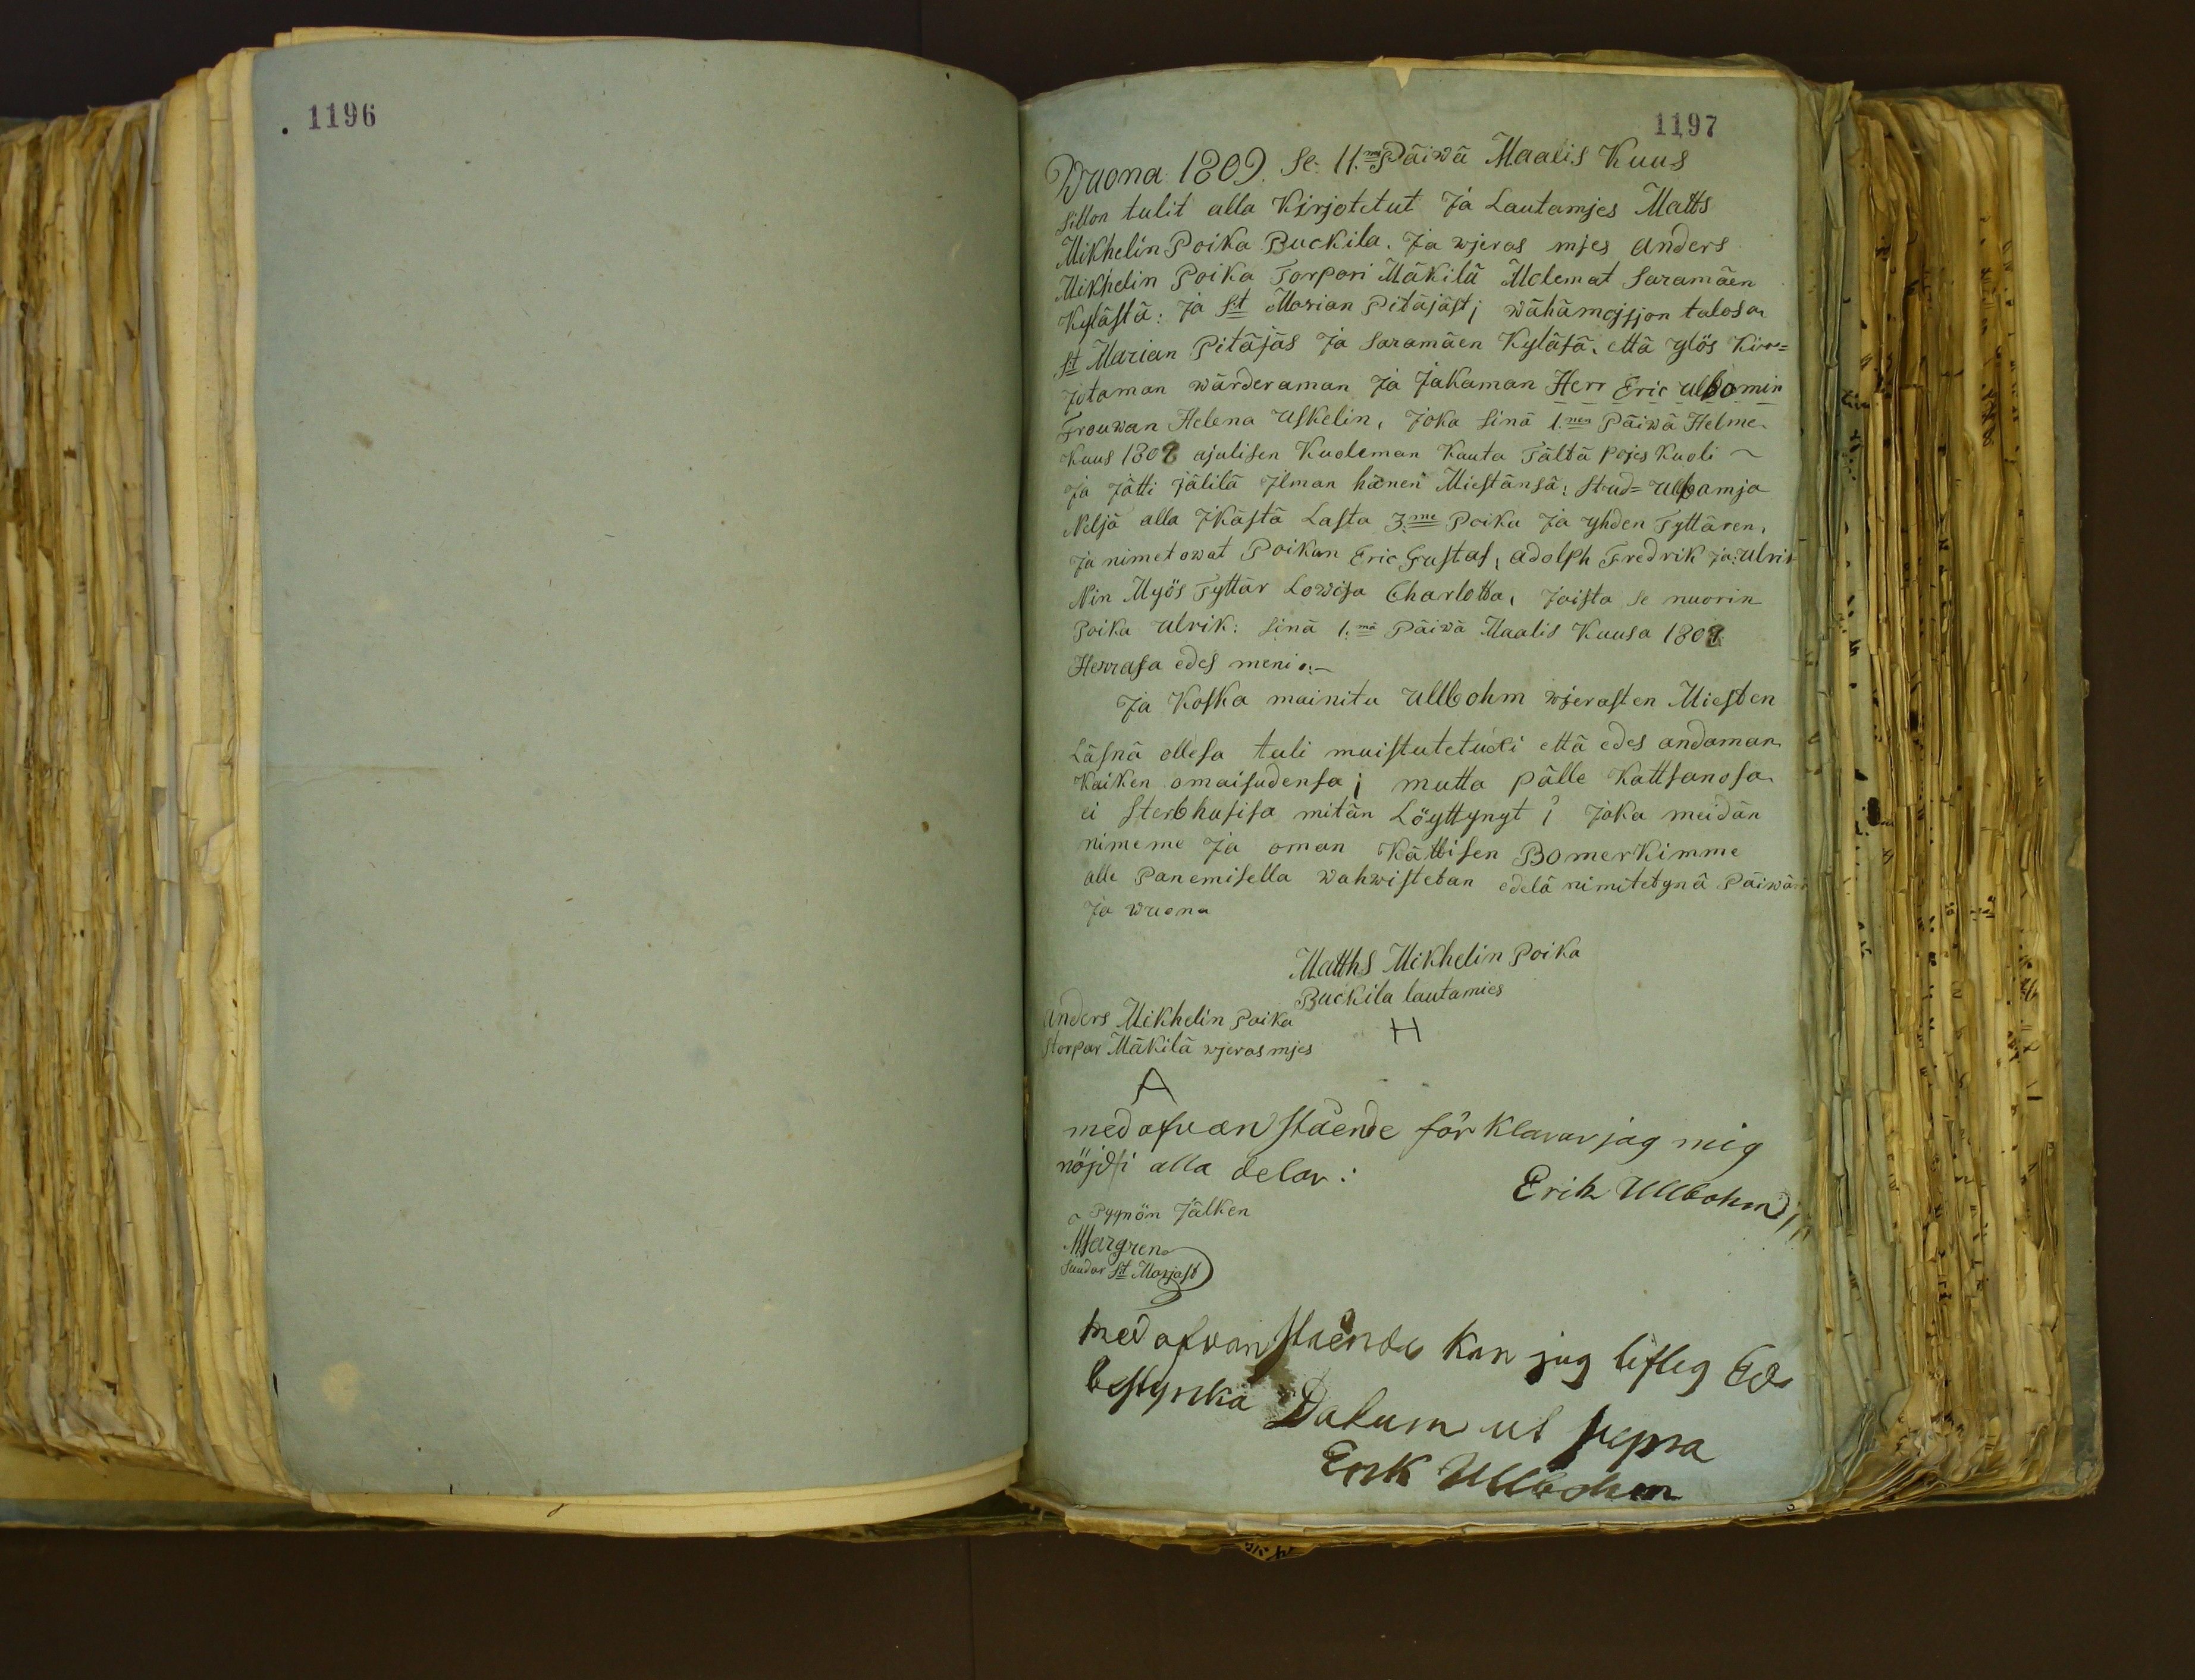 1196
1197
Wuona 1809. Se. 11.ma Päiwä Maalis Kuus
sillon tulit alla Kirjotetut Ja Lautamjes Matts
Mikhelin Poika Buckila. Ja wjeras mjes Anders
Mikhelin Poika Torpari Mäkilä Molemat Saramäen
Kylästä: Ja St Marian Pitäjäst; wähämojsjon talosa
St Marian Pitäjäs Ja Saramäen Kyläsä, että ylös Kir=
Jotaman wärderaman Ja Jakaman Herr Eric Ulbomin
Frouwan Helena Uskelin, Joka sinä 1.nen Päiwä Helme
Kuus 1808 ajalisen Kuoleman Kauta Tältä pojes Kuoli ~
Ja Jätti jälilä Ilman hänen Miestänsä: Stud= Ulbamja
Neljä alla Ikästä Lasta 3.me Poika Ja yhden Tyttären,
Ja nimetowat Poikan Eric Gustaf, Adolph Fredrik ja Ulrik
Nin Myös Tyttär Lowisa Charlotta, Joista se nuorin
Poika Ulrik: sinä 1.mä Päiwä Maalis Kuusa 1808
Herrasa edes meni.~
Ja Koska mainitu Ullbohm wjerasten Miesten
Läsnä ollesa tuli muistutetuxi että edes andaman
Kaiken omaisudensa; mutta pälle Kattsanosa
ei Sterbhusisa mitän Löyttynyt; Joka meidän
nimeme Ja oman Kättisen Bomerkimme
alle Panemisella wahwistetan edelä nimitetynä Päiwänä
Ja wuona
Matths Mikhelin Poika
Buckila lautamies
H
Anders Mikhelin Poika
storpar Mäkilä wjeras mjes
A
med ofvanstående förklarar jag mig
nöjd i alla delar:
Erik Ullbohm
Pyynön Jälken
Margren
Suudar St Marjast
med ofvanstående kan jag lifleg Ed
bestyrcka Datum ut supra
Erik Ullbohm